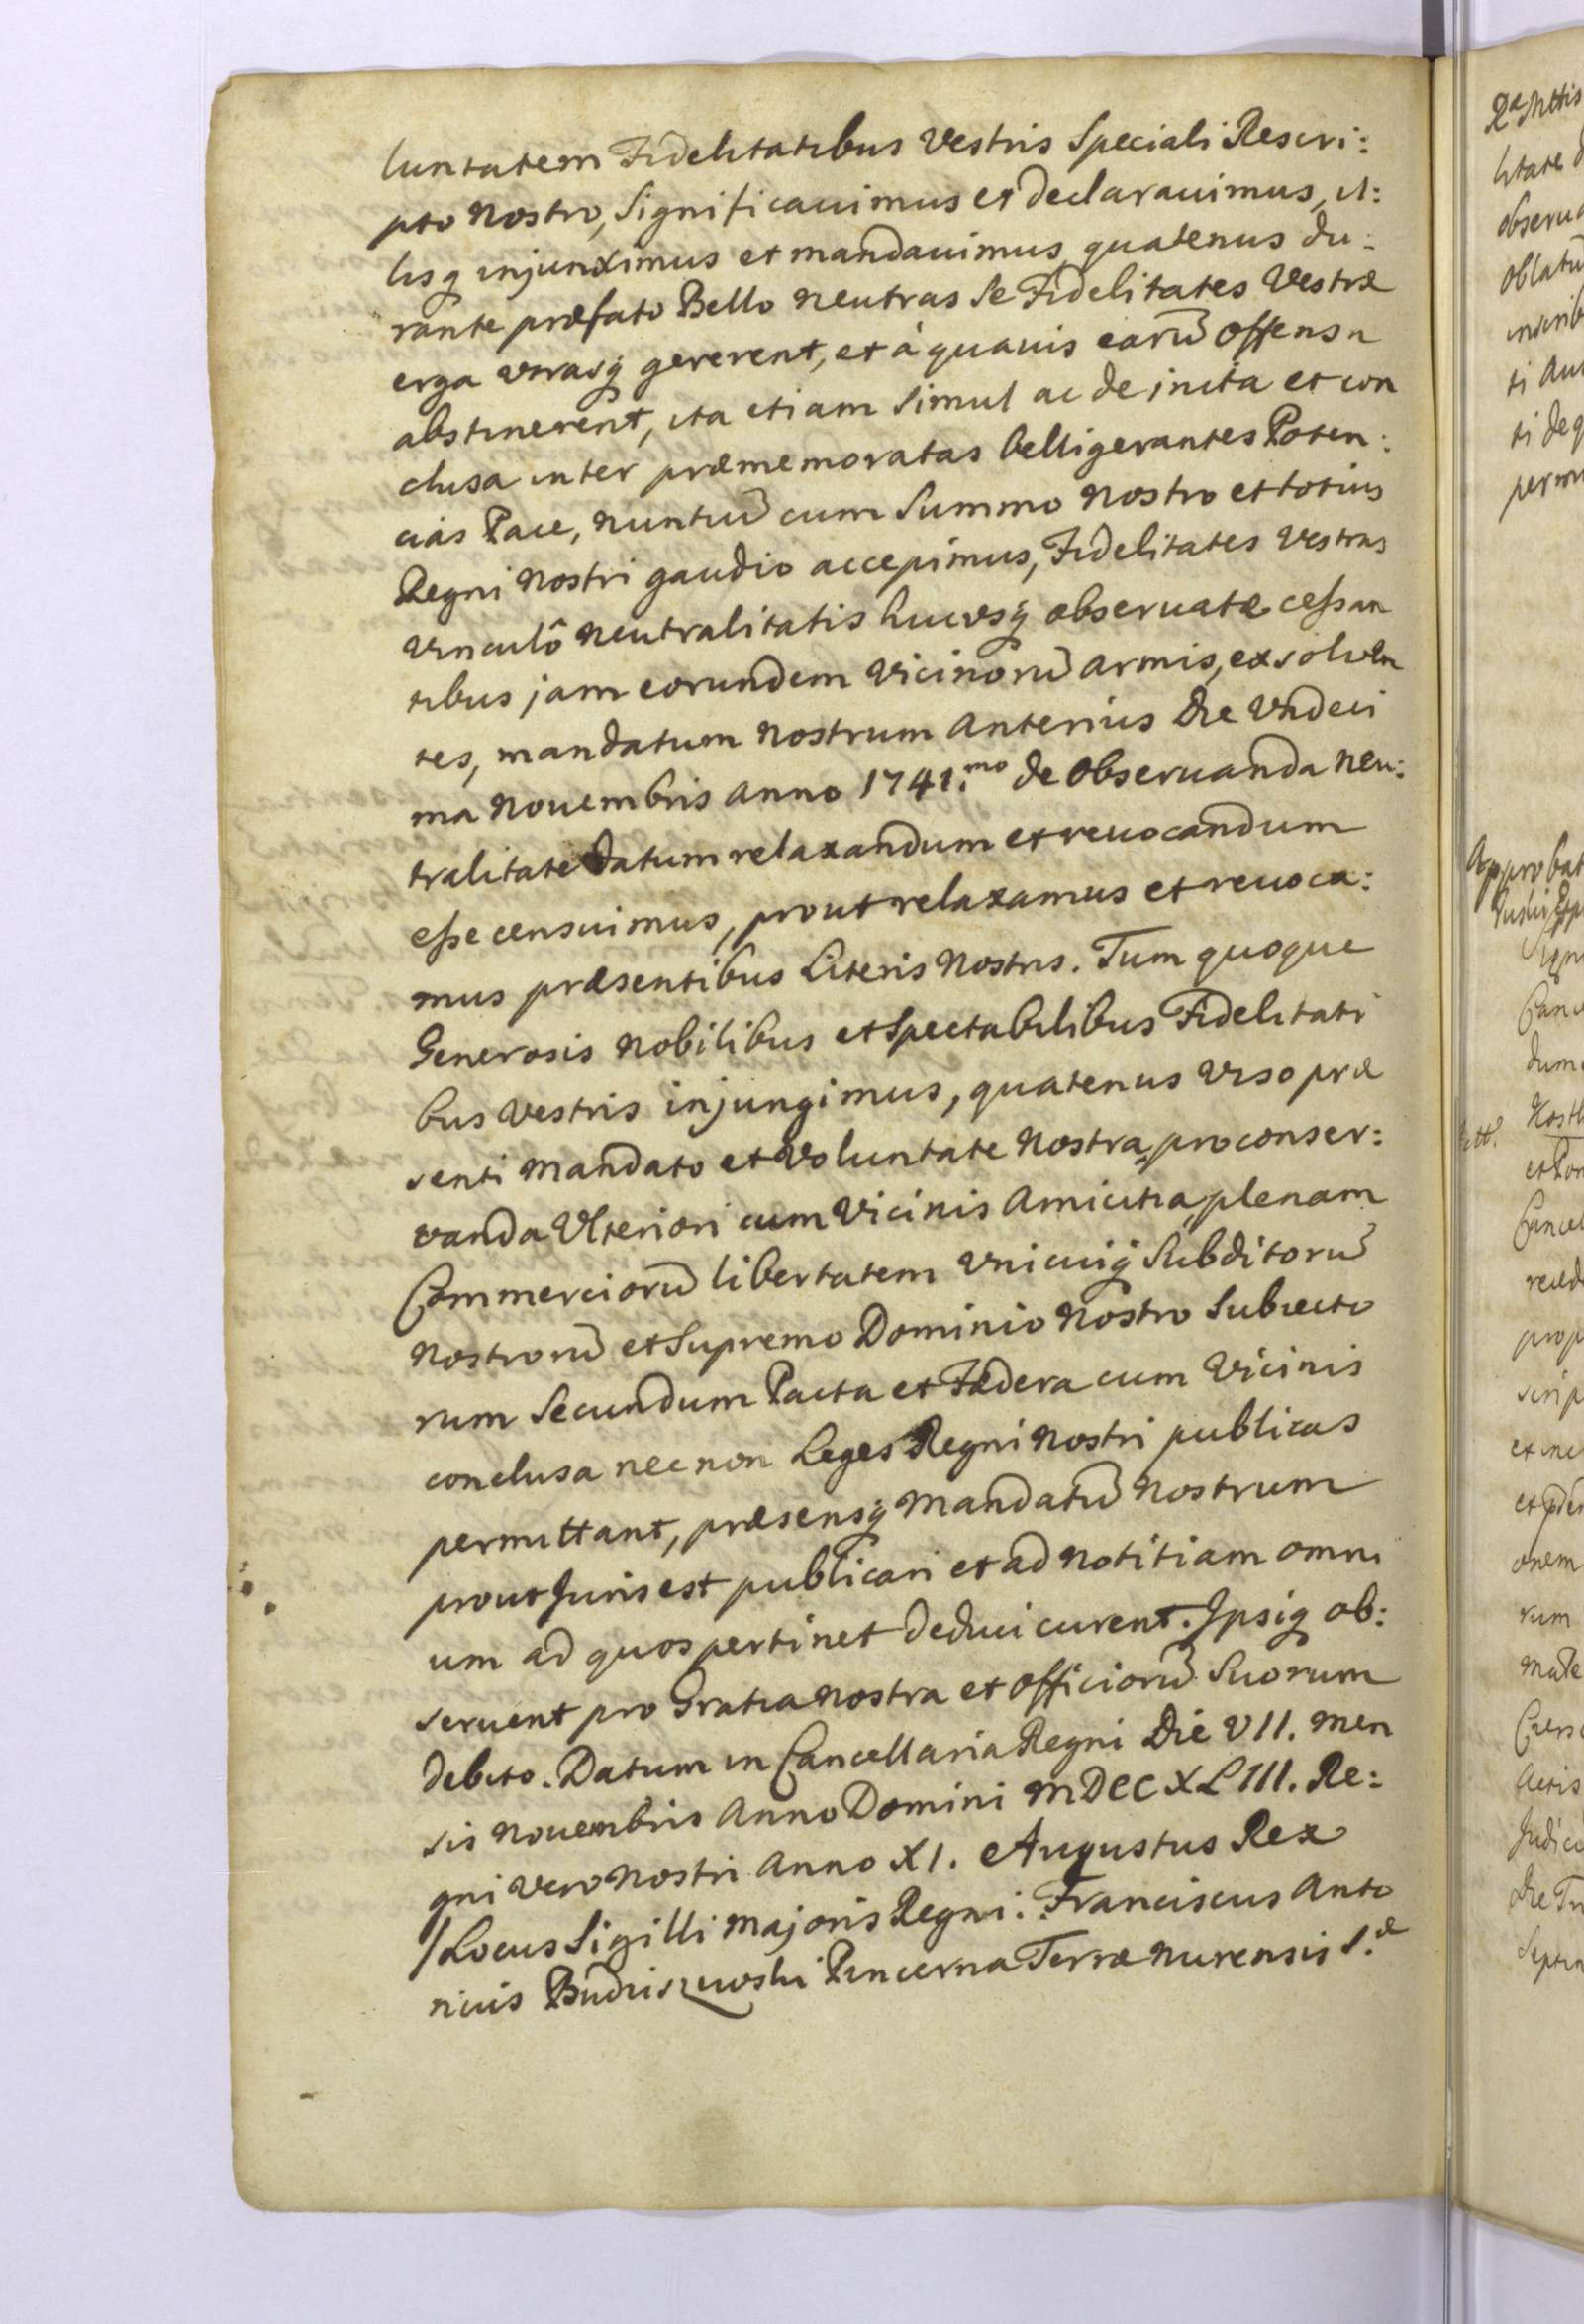 luntatem Fidelitatibus Vestris Speciali Rescri:
pto Nostro, Significauimus et declarauimus, il:
lisq injunximus et mandauimus quatenus du:
rante præfato Bello neutras Se Fidelitates Vestræ
erga utrasq gererent, et à quauis earũ offensa
abstinerent, ita etiam Simul ac de inita et con
clusa inter præmemoratas belligerantes Poten:
cias Pace, nuntiũ cum Summo Nostro et totius
Regni Nostri gaudio accepimus, Fidelitates Vestras
vinculô neutralitatis hucusq obseruatæ cessan
tibus jam eorundem vicinorũ armis, exsoluen
tes, mandatum Nostrum anterius Die Vndeci
ma Nouembris Anno 1741.mo de obseruanda neu:
tralitate datum relaxandum et reuocandum
esse censuimus, prout relaxamus et reuoca:
mus præsentibus Literis Nostris. Tum quoque
Generosis Nobilibus et Spectabilibus Fidelitati
bus Vestris injungimus, quatenus viso præ
senti Mandato et Voluntate Nostra, pro conser:
vanda Vlteriori cum Vicinis Amicitia, plenam
Commerciorũ libertatem Vnicuiq Subditorũ
Nostrorũ et Supremo Dominio Nostro Subiecto
rum Secundum Pacta et Fædera cum Vicinis
conclusa nec non Leges Regni Nostri publicas
permittant, præsensq Mandatũ Nostrum
prout Juris est publicari et ad notitiam omni
um ad quos pertinet deduci curent. Ipsiq ob:
seruent pro Gratia Nostra et officiorũ Suorum
debito. Datum in Cancellaria Regni Die VII. Men
sis Nouembris Anno Domini MDCCXLIII. Re:
gni vero Nostri Anno XI. Augustus Rex
/Locus Sigilli Majoris Regni: Franciscus Anto
nius Budziszewski Pincerna Terræ Nurensis S.æ